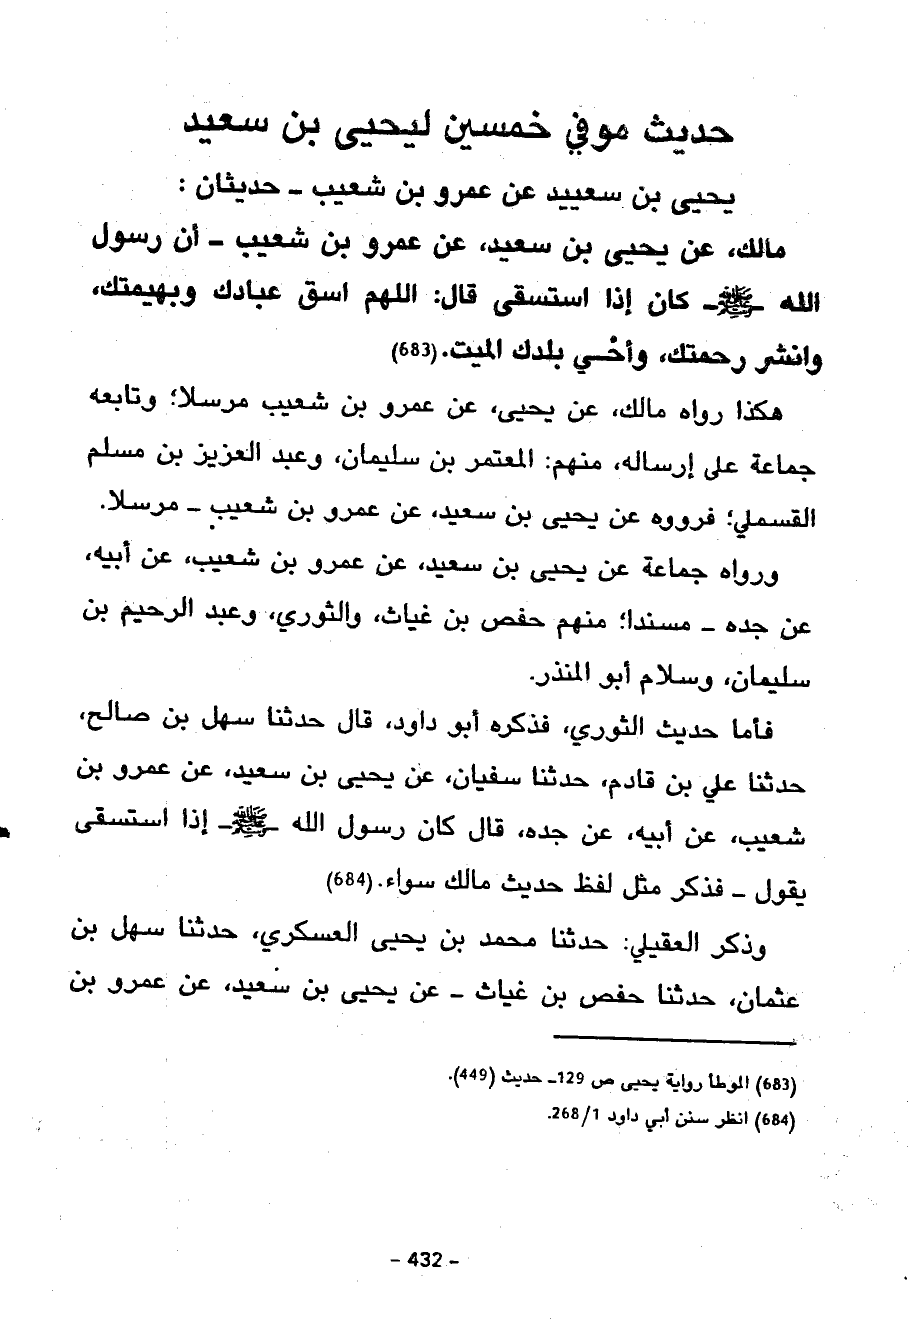 حديث موفي خمسين ليحيى بن سعيد
يحيى بن سعييد عن عمرو بن شعيب ـ حديثان :
مالك، عن يحيى بن سعيد، عن عمرو بن شعيب ـ أن رسول
الله ـﷺـ كان إذا استسقى قال: اللهم اسق عبادك وبهيمتك،
وانشر رحمتك، وأحْي بلدك الميت.(683)
هكذا رواه مالك، عن يحيى، عن عمرو بن شعيب مرسلا؛ وتابعه
جماعة على إرساله، منهم: المعتمر بن سليمان، وعبد العزيز بن مسلم
القسملي؛ فرووه عن يحيى بن سعيد، عن عمرو بن شعيب ـ مرسلا.
ورواه جماعة عن يحيى بن سعيد، عن عمرو بن شعيب، عن أبيه،
عن جده ـ مسندا؛ منهم حفص بن غياث، والثوري، وعبد الرحيم بن
سليمان، وسلام أبو المنذر.
فأما حديث الثوري، فذكره أبو داود، قال حدثنا سهل بن صالح،
حدثنا علي بن قادم، حدثنا سفيان، عن يحيى بن سعيد، عن عمرو بن
شعيب، عن أبيه، عن جده، قال كان رسول الله ـﷺـ إذا استسقى
يقول ـ فذكر مثل لفظ حديث مالك سواء.(684)
وذكر العقيلي: حدثنا محمد بن يحيى العسكري، حدثنا سهل بن
عثمان، حدثنا حفص بن غياث ـ عن يحيى بن سعيد، عن عمرو بن
(683) الموطأ رواية يحيى ص 129ـ حديث (449).
(684) انظر سنن أبي داود 1/268.
- 432 -